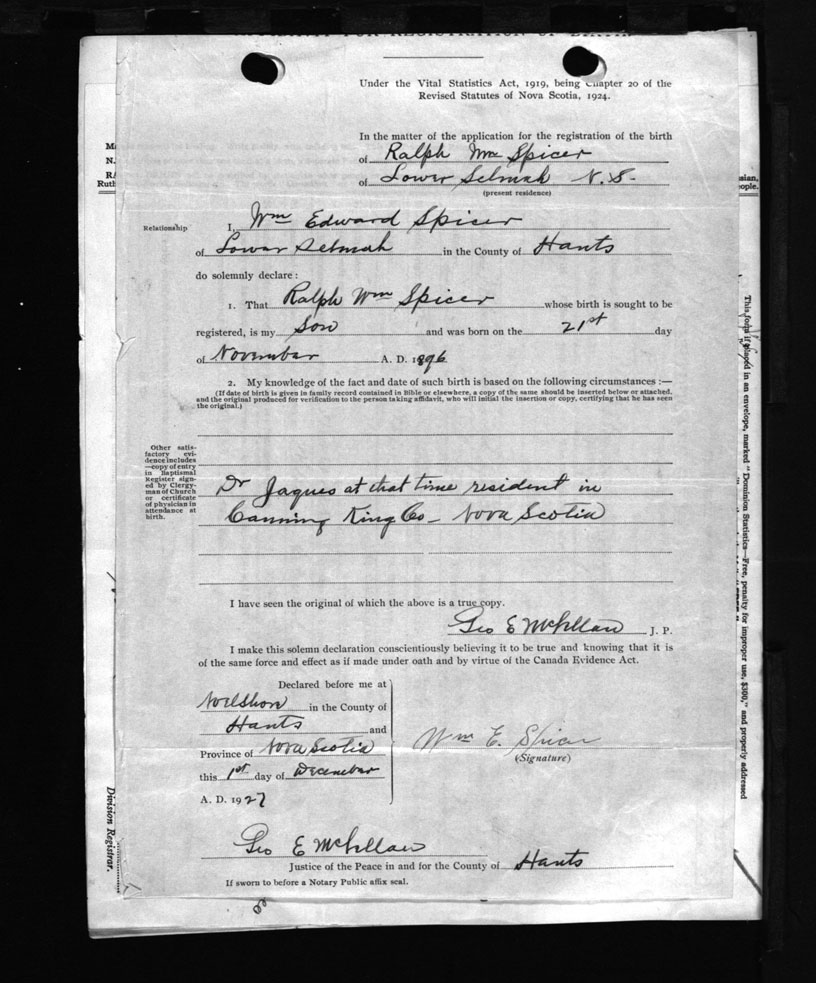 FOR REGISTRATION OF BIRTH
Under the Vital Statistics Act, 1919, being Chapter 20 of the
Revised Statutes of Nova Scotia, 1924.
In the matter of the application for the registration of the birth
of Ralph Wm Spicer
of Lower Selmah N.S.
(present residence)
Relationship
I, Wm Edward Spicer
of Lower Selmah in the County of Hants
do solemnly declare :
1. That Ralph Wm Spicer whose birth is sought to be
registered, is my Son and was born on the 21st day
of November A. D. 1896
2. My knowledge of the fact and date of such birth is based on the following circumstances :—
(If date of birth is given in family record contained in Bible or elsewhere, a copy of the same should be inserted below or attached,
and the original produced for verification to the person taking affidavit, who will initial the insertion or copy, certifying that he has seen
the original.)
Other satis-
factory evi-
dence includes
—copy of entry
in Baptismal
Register sign-
ed by Clergy-
man of Church
or certificate
of physician in
attendance at
birth.
Dr Jaques at that time resident in
Canning King Co — Nova Scotia
I have seen the original of which the above is a true copy.
Geo E McLellan J. P.
I make this solemn declaration conscientiously believing it to be true and knowing that it is
of the same force and effect as if made under oath and by virtue of the Canada Evidence Act.
Declared before me at
in the County of
Hants and
Province of Nova Scotia
this 1st day of December
A. D. 1927
Wm E. Spicer
(Signature)
Geo E McLellan
Justice of the Peace in and for the County of Hants
If sworn to before a Notary Public affix seal.
N.
Ruth
sian,
ople.
This form if placed in an envelope, marked "Dominion Statistics—Free, penalty for improper use, $300," and properly addressed
Division Registrar.